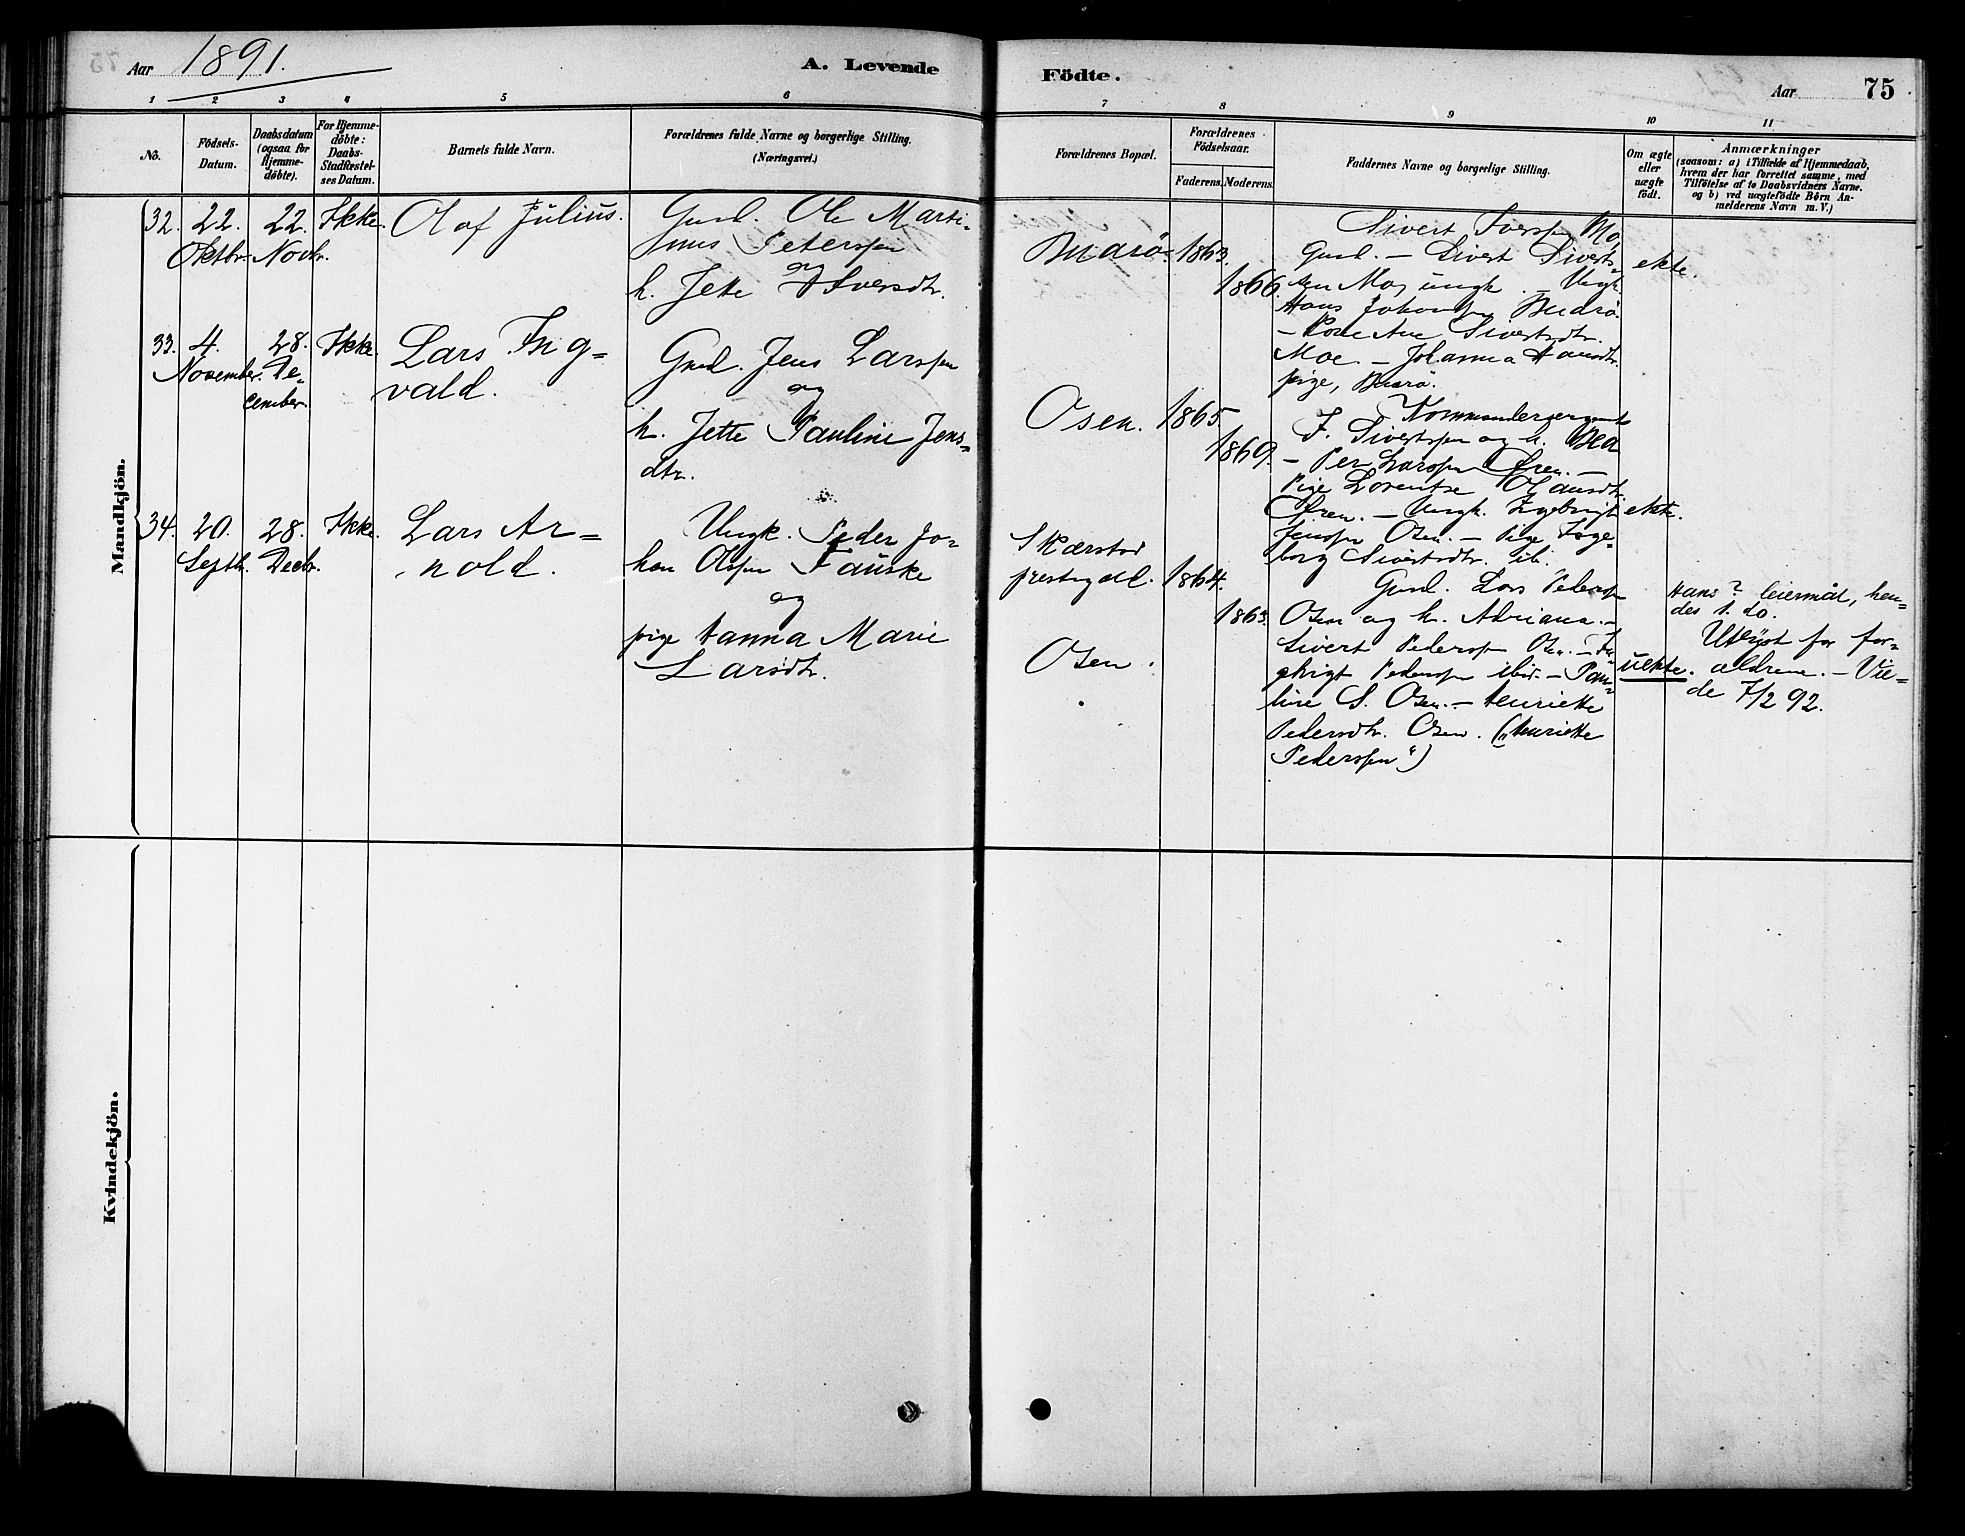 Aar 1891.
A. Levende
Födte.
Aar
75
1 2 3 4 5 6
7 8 9 10 11
No.
Födsels-
Datum.
Daabsdatum
(ogsaa for
Hjemme-
döbte).
For Hjemme-
döbte:
Daabs-
Stadfæstel-
ses Datum.
Barnets fulde Navn.
Forældrenes fulde Navne og borgerlige Stilling.
(Næringsvei.)
Forældrenes Bopæl.
Forældrenes
Födselsaar.
Faderens. Moderens.
Faddernes Navne og borgerlige Stilling.
Om ægte
eller
uægte
födt.
Anmærkninger
(saasom: a) i Tilfælde af Hjemmedaab,
hvem der har forrettet samme, med
Tilföielse af to Daabsvidners Navne.
og b) ved uægtefödte Börn An-
melderens Navn m. V.)
Mandkjön.
32.
22.
Oktbr.
22.
Novbr.
Ikke.
Olaf Julius.
Gmd. Ole Marti-
nus Peterssen
og
h. Jette Iversdtr.
1863.
1866.
Sivert Iverssen Mo,
Gmd. – Sivert Siverts-
sen Mo, ungk. – Ungk.
Hans Johanssen
Sivertsdtr.
Moe. – Johanna Hansdtr.
pige,
ekte.
33.
4.
November.
28.
De-
cember.
Ikke.
Lars Ing-
vald.
Gmd. Jens Larssen
og
h. Jette Pauline Jens-
dtr.
Osen.
1865
1869.
Kommandersergeant
J. Sivertssen og h.
– Per Larssen –
Pige Lorentse
– Ungk. Ingebrigt
Jenssen Osen. – Pige Inge-
borg Sivertsdtr. ib.
ekte.
34.
20.
Septbr.
28.
Decbr.
Ikke.
Lars Ar-
nold.
Ungk. Peder Jo-
han Olssen Fauske
og
pige Hanna Marie
Larsdtr.
Skærstad
prestegjeld.
Osen.
1864.
1863.
Gmd. Lars Pederssen
Osen og h. Adriana. –
Sivert Pederssen Osen. – In-
gebrigt Pederssen ibid. – Pau-
line S. Osen. – Henriette
Pedersdtr. Osen. („Henriette
Pederssen“)
uekte.
Hans ? leiermål, hen-
des 1. do.
Utlyst for for-
ældrene. – Vie-
de 7/2 92.
Kvindekjön.